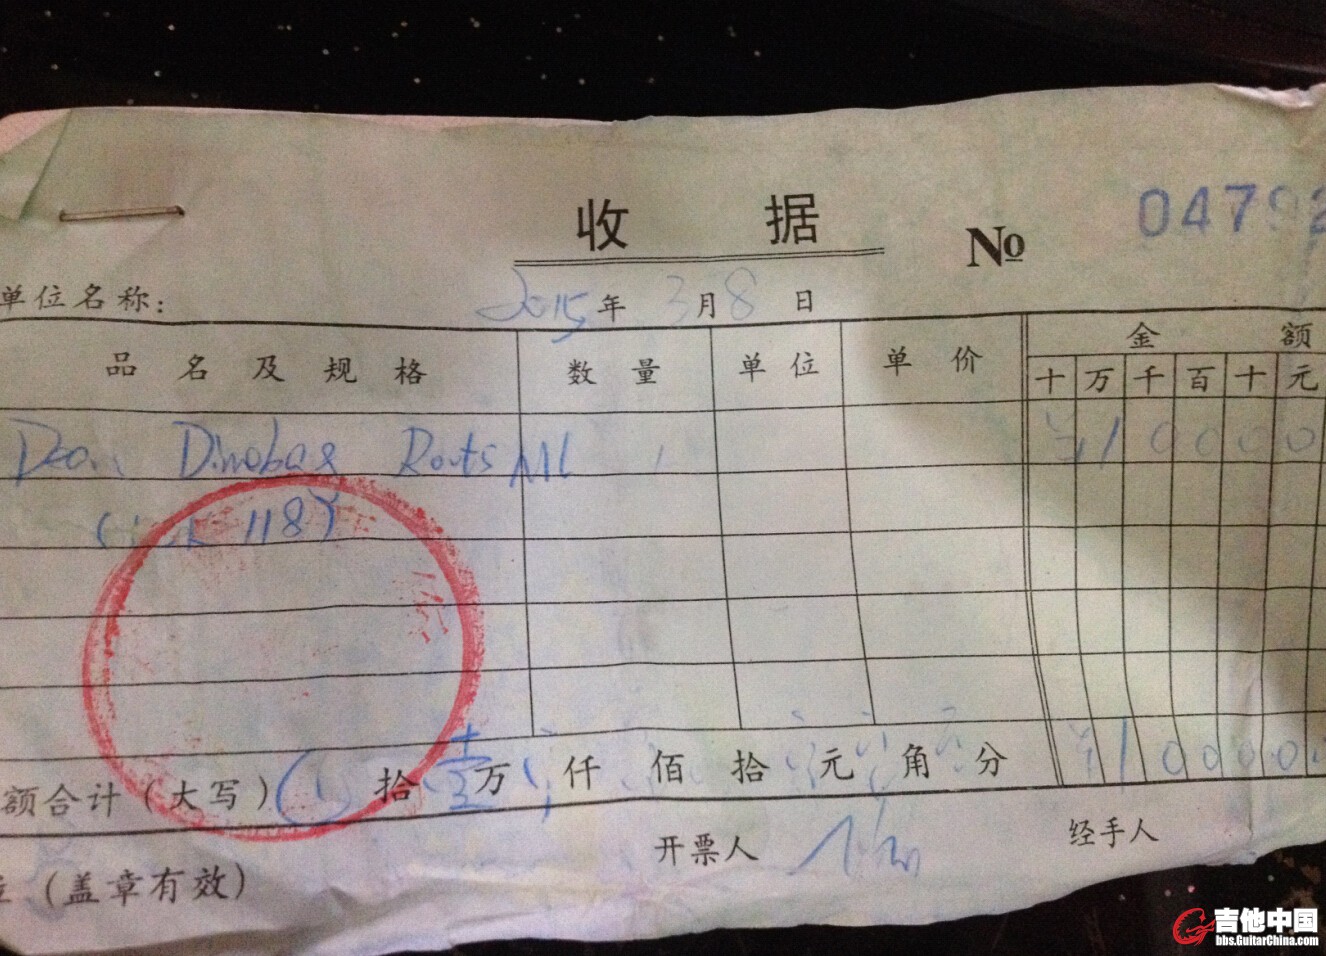 收 据
№ 0479
单位名称: 2015年 3月8日
品名及规格 数量 单位 单价 金额
十 万 千 百 十 元
Dean Dimebag Roots ML 1 ¥10000
118)
¥10000
额合计(大写) 拾 壹万 仟 佰 拾 元 角 分
开票人 经手人
(盖章有效)
吉他中国
bbs.GuitarChina.com